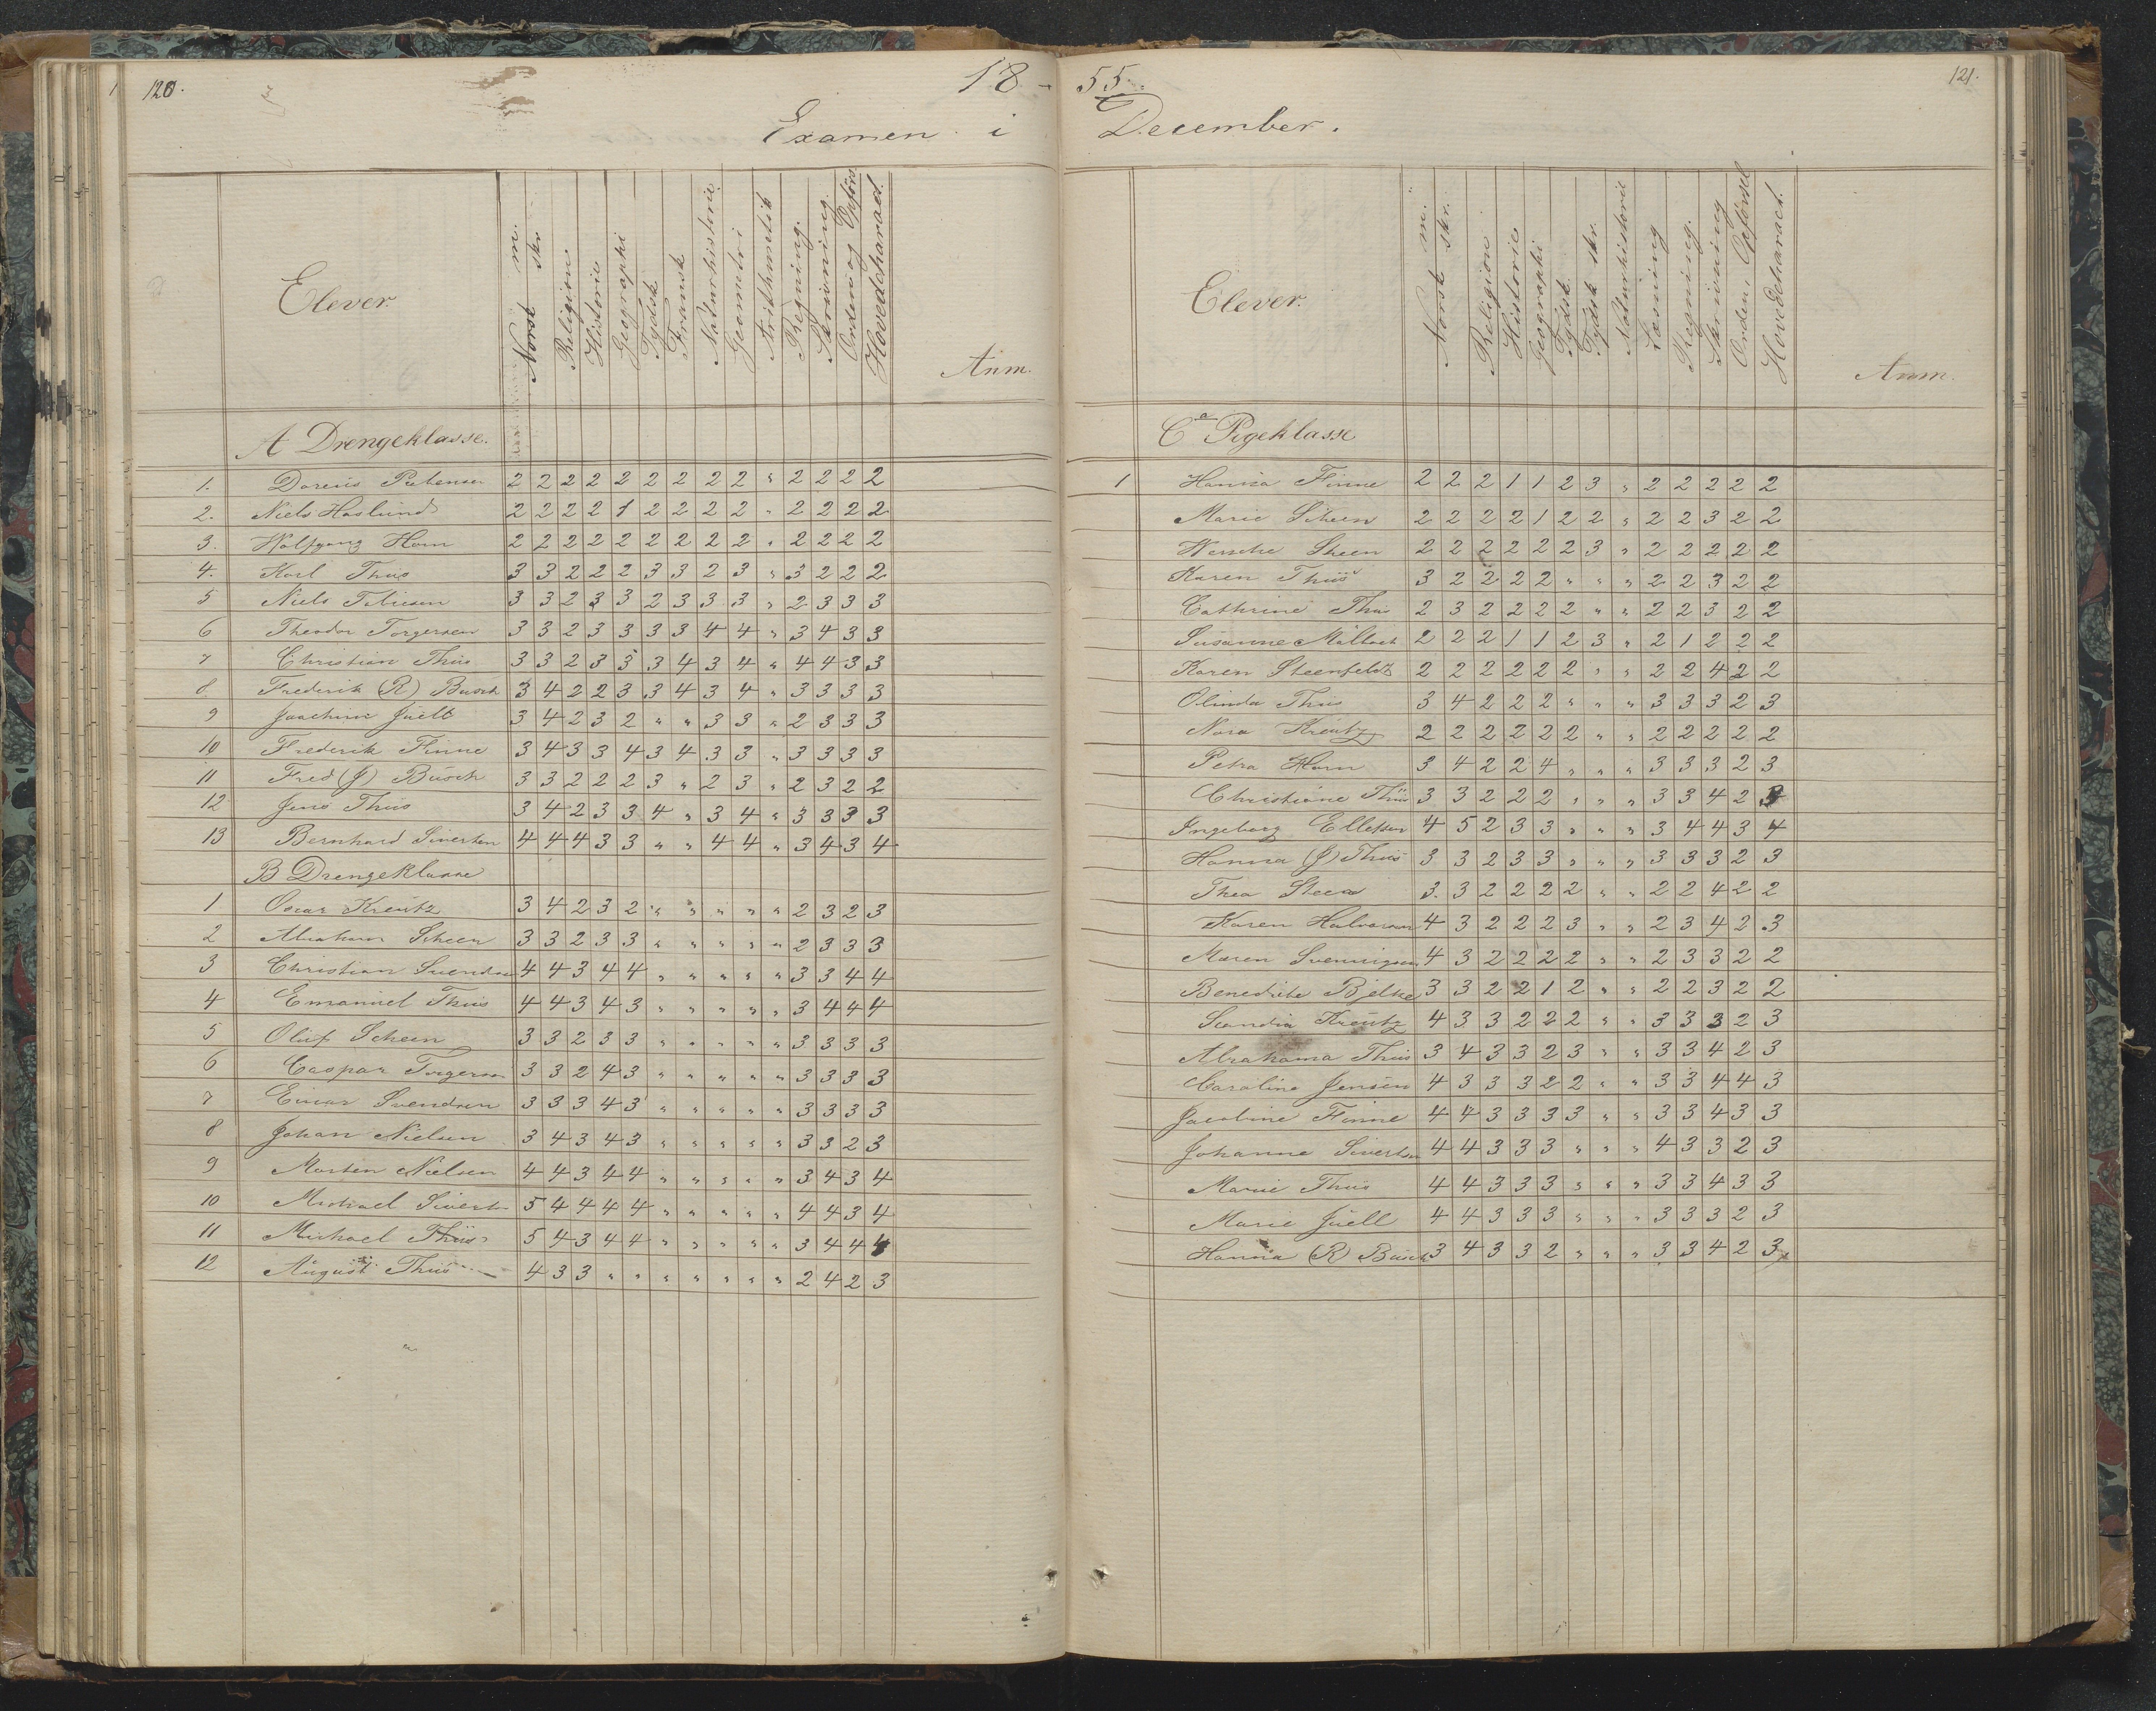 120.
18
Examen i
Elever.
Norsk m.
skr
Religion
Historie
Geographi
Tydsk
Fransk
Naturhistorie
Geometri
Arithmetik
Regning.
Skrivning.
Orden og Opførs
Hovedcharact.
Anm.
A Drengeklasse.
1. Petersen 2 2 2 2 2 2 2 2 2 " 2 2 2 2
2. Niels Haslund 2 2 2 2 1 2 2 2 2 " 2 2 2 2
3. Wolfgang Horn 2 2 2 2 2 2 2 2 2 " 2 2 2 2
4. Karl Thiis 3 3 2 2 2 3 3 2 3 " 3 2 2 2
5 Niels 3 3 2 3 3 2 3 3 3 " 2 3 3 3
6 Theodor Torgersen 3 3 2 3 3 3 3 4 4 " 3 4 3 3
7 Christian Thiis 3 3 2 3 3 3 4 3 4 " 4 4 3 3
8. Frederik (R) Busch 3 4 2 2 3 3 4 3 4 " 3 3 3 3
9 Joachim Juell 3 4 2 3 2 " " 3 3 " 2 3 3 3
10 Frederik Finne 3 4 3 3 4 3 4 3 3 " 3 3 3 3
11 Fred (J) Busch 3 3 2 2 2 3 " 2 3 " 2 3 2 2
12 Jens Thiis 3 4 2 3 3 4 " 3 4 " 3 3 3 3
13 Bernhard Siverten 4 4 4 3 3 " " 4 4 " 3 4 3 4
B Drengeklasse
1 Oscar Kreutz 3 4 2 3 2 " " " " " 2 3 2 3
2 Abraham Scheen 3 3 2 3 3 " " " " " 2 3 3 3
3 Christian Svendsen 4 4 3 4 4 " " " " " 3 3 4 4
4 Emanuel Thiis 4 4 3 4 3 " " " " " 3 4 4 4
5 Oluf Scheen 3 3 2 3 3 " " " " " 3 3 3 3
6 Caspar Torgersen 3 3 2 4 3 " " " " " 3 3 3 3
7 Einar Svendsen 3 3 3 4 3 " " " " " 3 3 3 3
8 Johan Nielsen 3 4 3 4 3 " " " " " 3 3 2 3
9 Morten Nielsen 4 4 3 4 4 " " " " " 3 4 3 4
10 Michael Sivert 5 4 4 4 4 " " " " " 4 4 3 4
11 Michael Thiis 5 4 3 4 4 " " " " " 3 4 4 4
12 August Thiis 4 3 3 " " " " " " " 2 4 2 3
55.
121.
December.
Elever.
Norsk m.
skr.
Religion
Historie
Geographi
Tydsk.
Tydsk skr.
Naturhistorie
Læsning
Regning.
Skrivning
Orden, Opførsel
Hovedcharact.
Anm.
C a Pigeklasse
1 Hanna Finne 2 2 2 1 1 2 3 " 2 2 2 2 2
Marie Scheen 2 2 2 2 1 2 2 " 2 2 3 2 2
Wenche Sheen 2 2 2 2 2 2 3 " 2 2 2 2 2
Karen Thiis 3 2 2 2 2 " " " 2 2 3 2 2
Cathrine Thiis 2 3 2 2 2 2 " " 2 2 3 2 2
Susanne 2 2 2 1 1 2 3 " 2 1 2 2 2
Karen Steenfeldt 2 2 2 2 2 2 " " 2 2 4 2 2
Olinda Thiis 3 4 2 2 2 " " " 3 3 3 2 3
Nora Kreutz 2 2 2 2 2 2 " " 2 2 2 2 2
Petra Horn 3 4 2 2 4 " " " 3 3 3 2 3
Christiane Thiis 3 3 2 2 2 " " " 3 3 4 2 3
Ingeborg Ellefsen 4 5 2 3 3 " " " 3 4 4 3 4
Hanna (J) Thiis 3 3 2 3 3 " " " 3 3 3 2 3
Thea Steen 3. 3 2 2 2 2 " " 2 2 4 2 2
Karen Halvorsen 4 3 2 2 2 3 " " 2 3 4 2 3
Maren Svenningsen 4 3 2 2 2 2 " " 2 3 3 2 2
Benedicte Bjelke 3 3 2 2 1 2 " " 2 2 3 2 2
Scandia Kreutz 4 3 3 2 2 2 " " 3 3 3 2 3
Abrahama Thiis 3 4 3 3 2 3 " " 3 3 4 2 3
Caroline Jensen 4 3 3 3 2 2 " " 3 3 4 4 3
Jacobine Finne 4 4 3 3 3 3 " " 3 3 4 3 3
Johanne Siverten 4 4 3 3 3 " " " 4 3 3 2 3
Marie Thiis 4 4 3 3 3 " " " 3 3 4 3 3
Marie Juell 4 4 3 3 3 " " " 3 3 3 2 3
Hanna (R) Busch 3 4 3 3 2 " " " 3 3 4 2 3